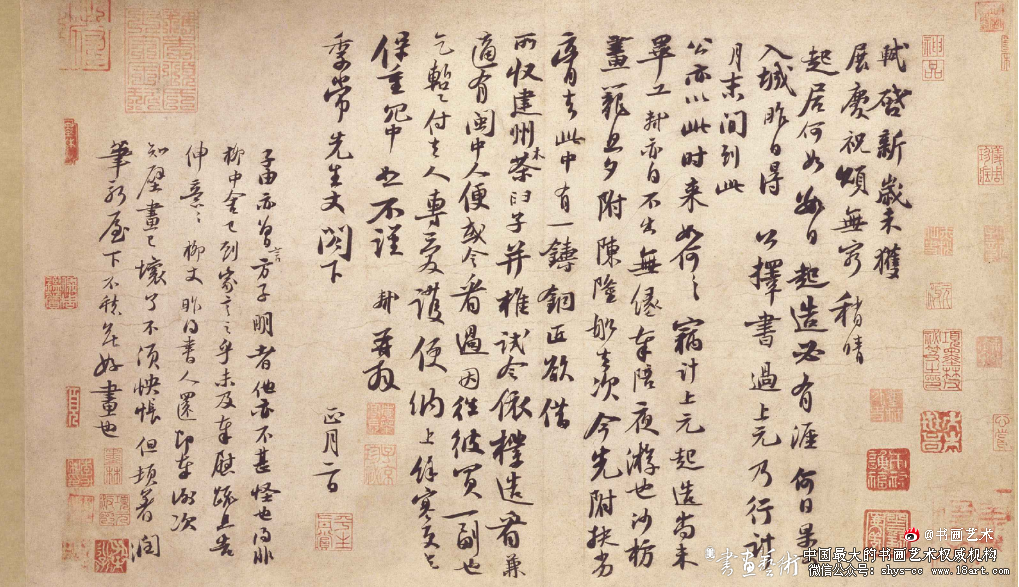 軾啓新歲未獲
展慶祝頌無窮稍晴
起居何如數日起造必有涯何日果
入城昨日得公擇書過上元乃行計
月末間到此
公亦以此時來如何〻竊計上元起造尚未
畢工軾亦自不出無緣奉陪夜游也沙枋
畫籠旦夕附陳隆船去次今先附扶劣
膏去此中有一鑄銅匠欲借
所收建州木茶臼子并椎試令依樣造看兼
適有閩中人便或令看過因往彼買一副也
乞暫付去人專愛護便納上餘寒更乞
保重冗中恕不謹軾再拜
季常先生丈閣下 正月二日
子由亦曾言方子明者他亦不甚怪也得非
柳中舍已到家言之乎未及奉慰疏且告
伸意〻柳丈昨得書人還即奉謝次
知壁畫已壞了不須怏悵但頓著潤
筆新屋下不愁無好畫也
@书画艺术
書畫藝術
中国最大的书画艺术权威机构
微信公众号：shys-cc www.18art.com